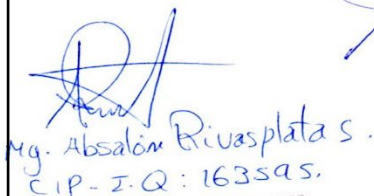 Mg. Absalón Rivasplata S.
CIP-I.Q: 163595.